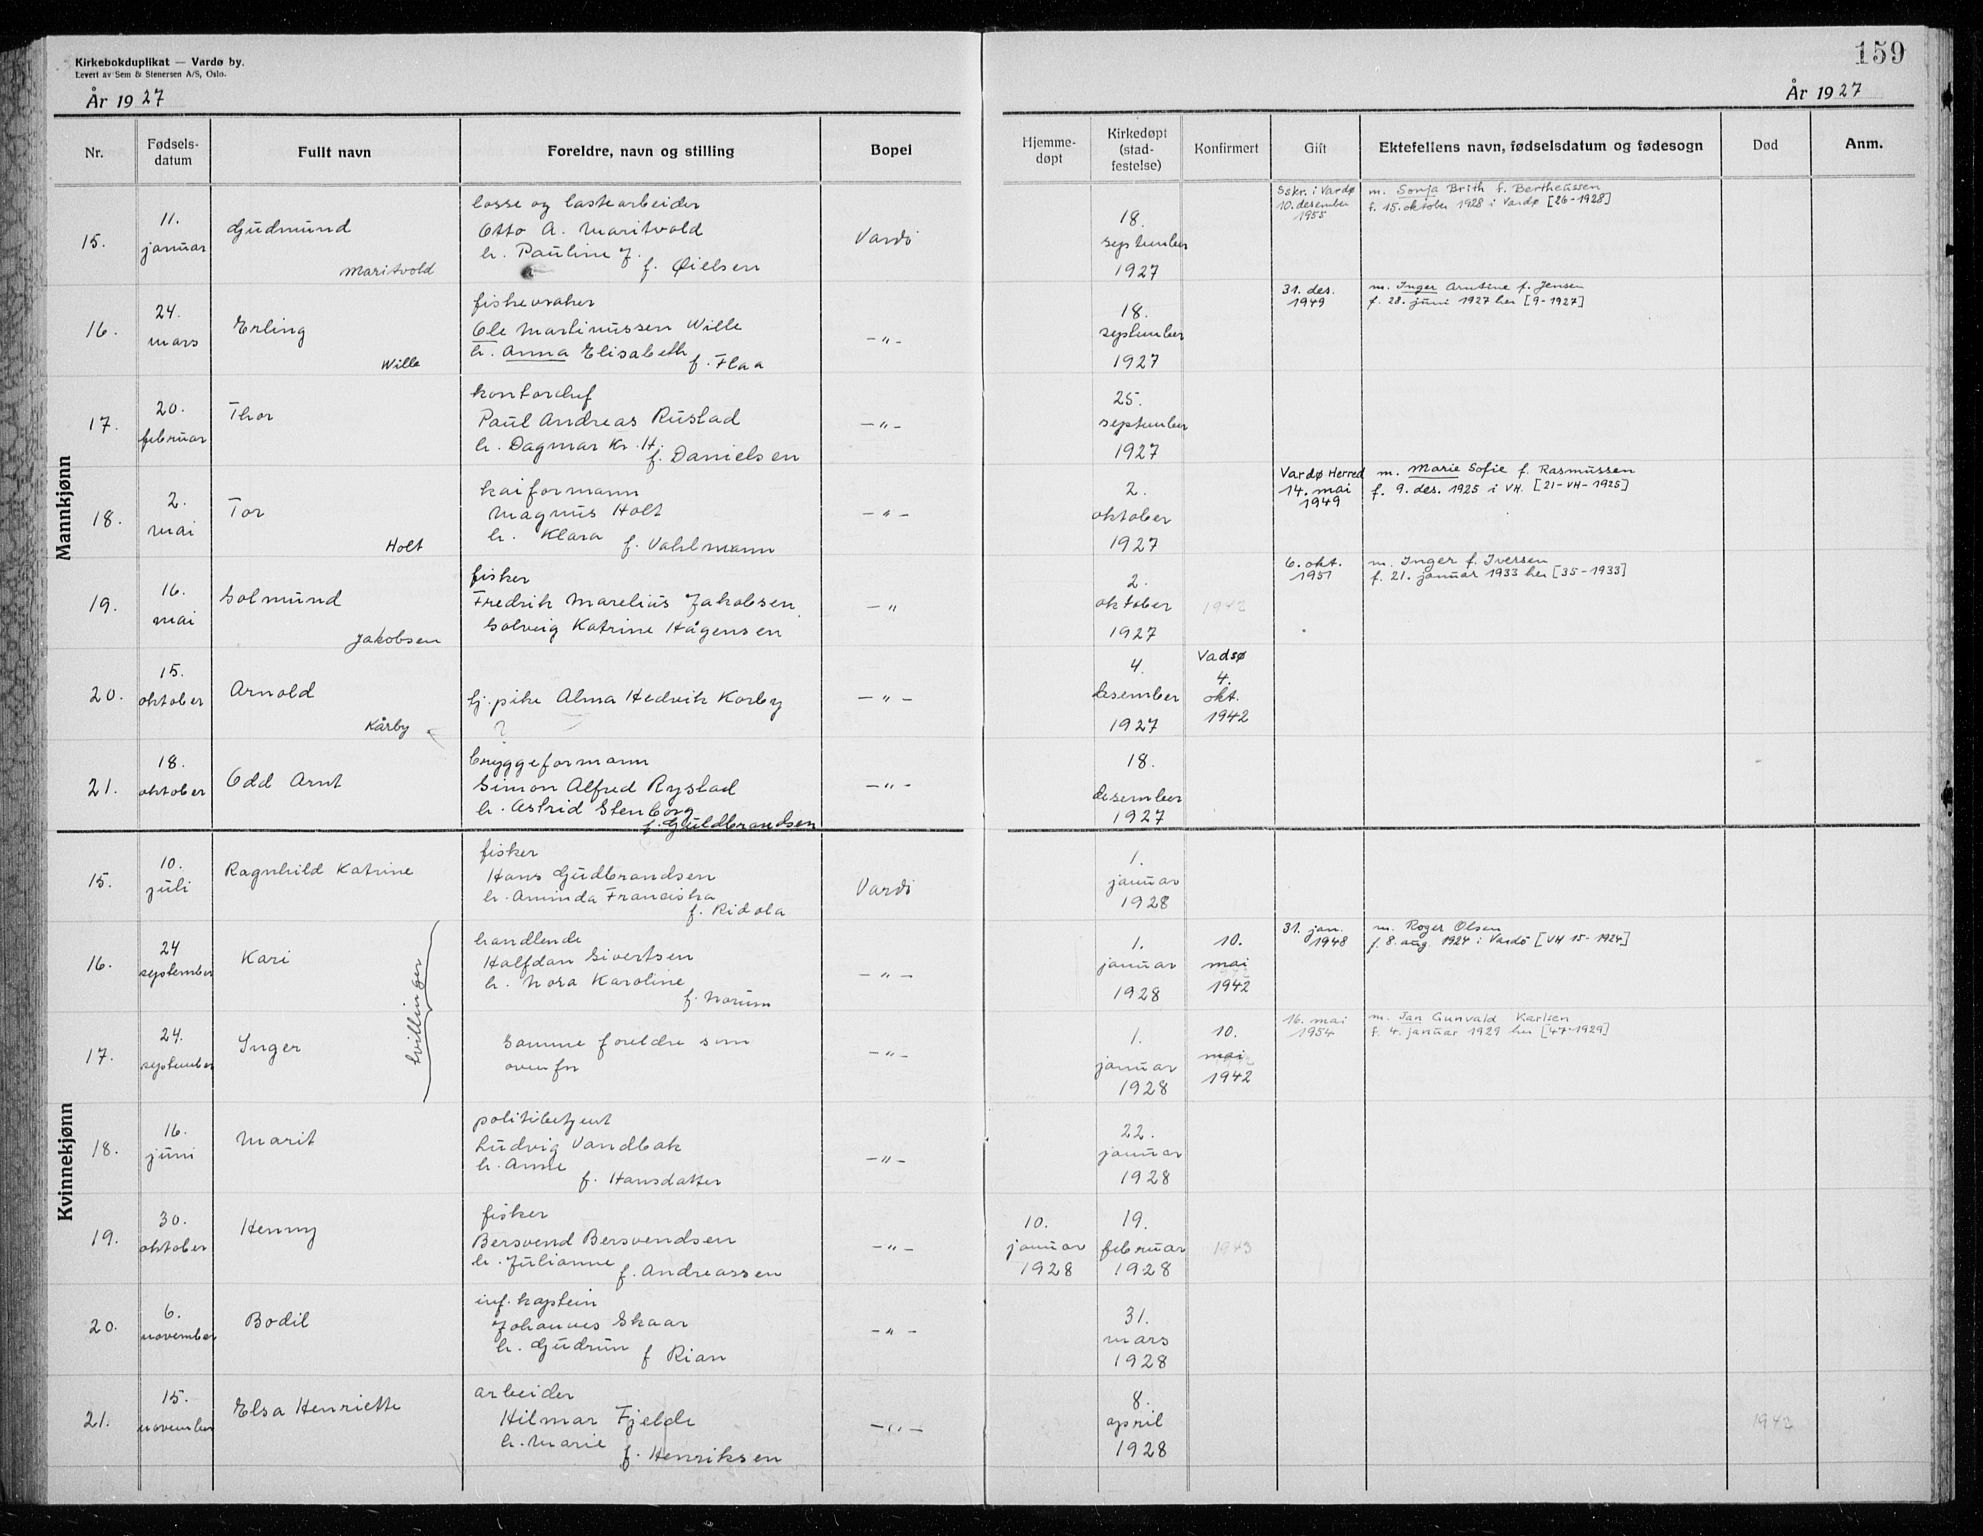 Kirkebokduplikat — Vardø by.
Levert av Sem & Stenersen A/S, Oslo.
År 1927
159
År 1927
Nr. Fødsels-datum Fullt navn Foreldre, navn og stilling Bopel Hjemme-døpt Kirkedøpt (stad-festelse) Konfirmert Gift Ektefellens navn, fødselsdatum og fødesogn Død Anm.
Mannkjønn
15. 11. januar Gudmund Maritvold
losse og lastearbeider
Otto A. Maritvold
h. Pauline J.
f. Øielsen
Vardö
18. september 1927
Sskr. i Vardø 10. desember 1955
m. Sonja Brith f. Bertheussen
f. 15. oktober 1928 i Vardø [26-1928]
16. 24. mars Erling Wille
fiskevraker
Ole Martinussen Wille
h. Anna Elisabeth
f. Flaa
—"—
18. september 1927
31. des. 1949
m. Inger Arntine f. Jensen
f. 28. juni 1927 her [9-1927]
17. 20. februar Thor
kontorchef
Paul Andreas Rustad
h. Dagmar Kr. H.
f. Danielsen
—"—
25. september 1927
18. 2. mai Tor Holt
kaiformann
Magnus Holt
h. Klara
f. Vahlmann
—"—
2. oktober 1927
Vardø Herred 14. mai 1949
m. Marie Sofie f. Rasmussen
f. 9. des. 1925 i VH. [21-VH-1925]
19. 16. mai Solmund Jakobsen
fisker
Fredrik Marelius Jakobsen
Solveig Katrine Hågensen
—"
2. oktober 1927
1942
6. okt. 1951
m. Inger f. Iversen
f. 21. januar 1933 her [35-1933]
20. 15. oktober Arnold Kårby
tj. pike Alma Hedvik Korby
?
—"—
4. desember 1927
Vadsø 4. okt. 1942
21. 18. oktober Odd Arnt
bryggeformann
Simon Alfred Rystad
h. Astrid Stenborg
f. Guldbrandsen
—"—
18. desember 1927
Kvinnekjønn
15. 10. juli Ragnhild Katrine
fisker
Hans Gudbrandsen
h. Aminda Franciska
f. Ridola
Vardö
1. januar 1928
16. 24 september Kari
tvillinger
handlende
Halfdan Sivertsen
h. Nora Karoline
f. Norum
—"—
1. januar 1928
10. mai 1942
31. jan. 1948
m. Roger Olsen
f. 8. aug. 1924 i Vardö [VH 15-1924]
17. 24. september Inger
Samme foreldre som
ovenfor
—"—
1. januar 1928
10. mai 1942
16. mai 1954
m. Jan Gunvald Karlsen
f. 4. januar 1929 her [47-1929]
18. 16. juni Marit
politibetjent
Ludvig Vandbak
h. Anne
f. Hansdatter
—"—
22. januar 1928
19. 30. oktober Henny
fisker
Bersvend Bersvendsen
h. Julianne
f. Andreassen
—"—
10. januar 1928
19. februar 1928
1943
20. 6. november Bodil
inf. kaptein
Johannes Skaar
h. Gudrun
f Rian
—"—
31. mars 1928
21. 15. november Elsa Henriette
arbeider
Hilmar Fjelde
h. Marie
f. Henriksen
—"—
8. april 1928
1942